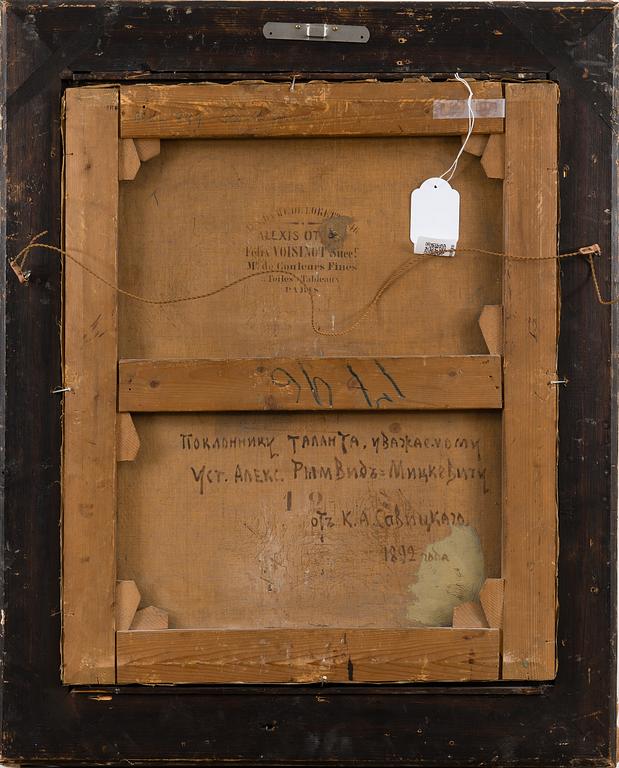 ALEXIS OT
Felix VOISINOT Succr
Md. de Couleurs Fines
Toiles & Tableaux
PARIS
Поклоннику таланта, уважаемому
Уст. Алекс. Рымвидъ=Мицкевичу
12
отъ К.А.Савицкаго
1892 года